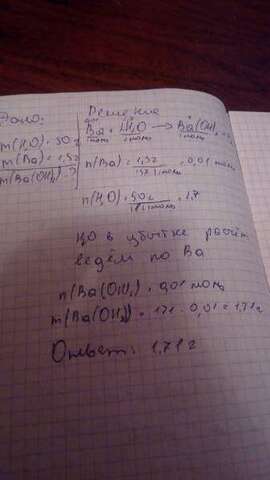 Дано:
m(H₂O) = 30г
m(Ba) = 1,3г
m(Ba(OH)₂) - ?
Решение
Ba + H₂O → Ba(OH)₂
1 моль 1 моль 1 моль
n(Ba) = 1,3г / 137 г/моль = 0,01 моль
n(H₂O) = 30г / 18 г/моль = 1,7
H₂O в избытке расчёт
ведём по Ba
n(Ba(OH)₂) = 0,01 моль
m(Ba(OH)₂) = 171 · 0,01 = 1,71г
Ответ: 1,71г